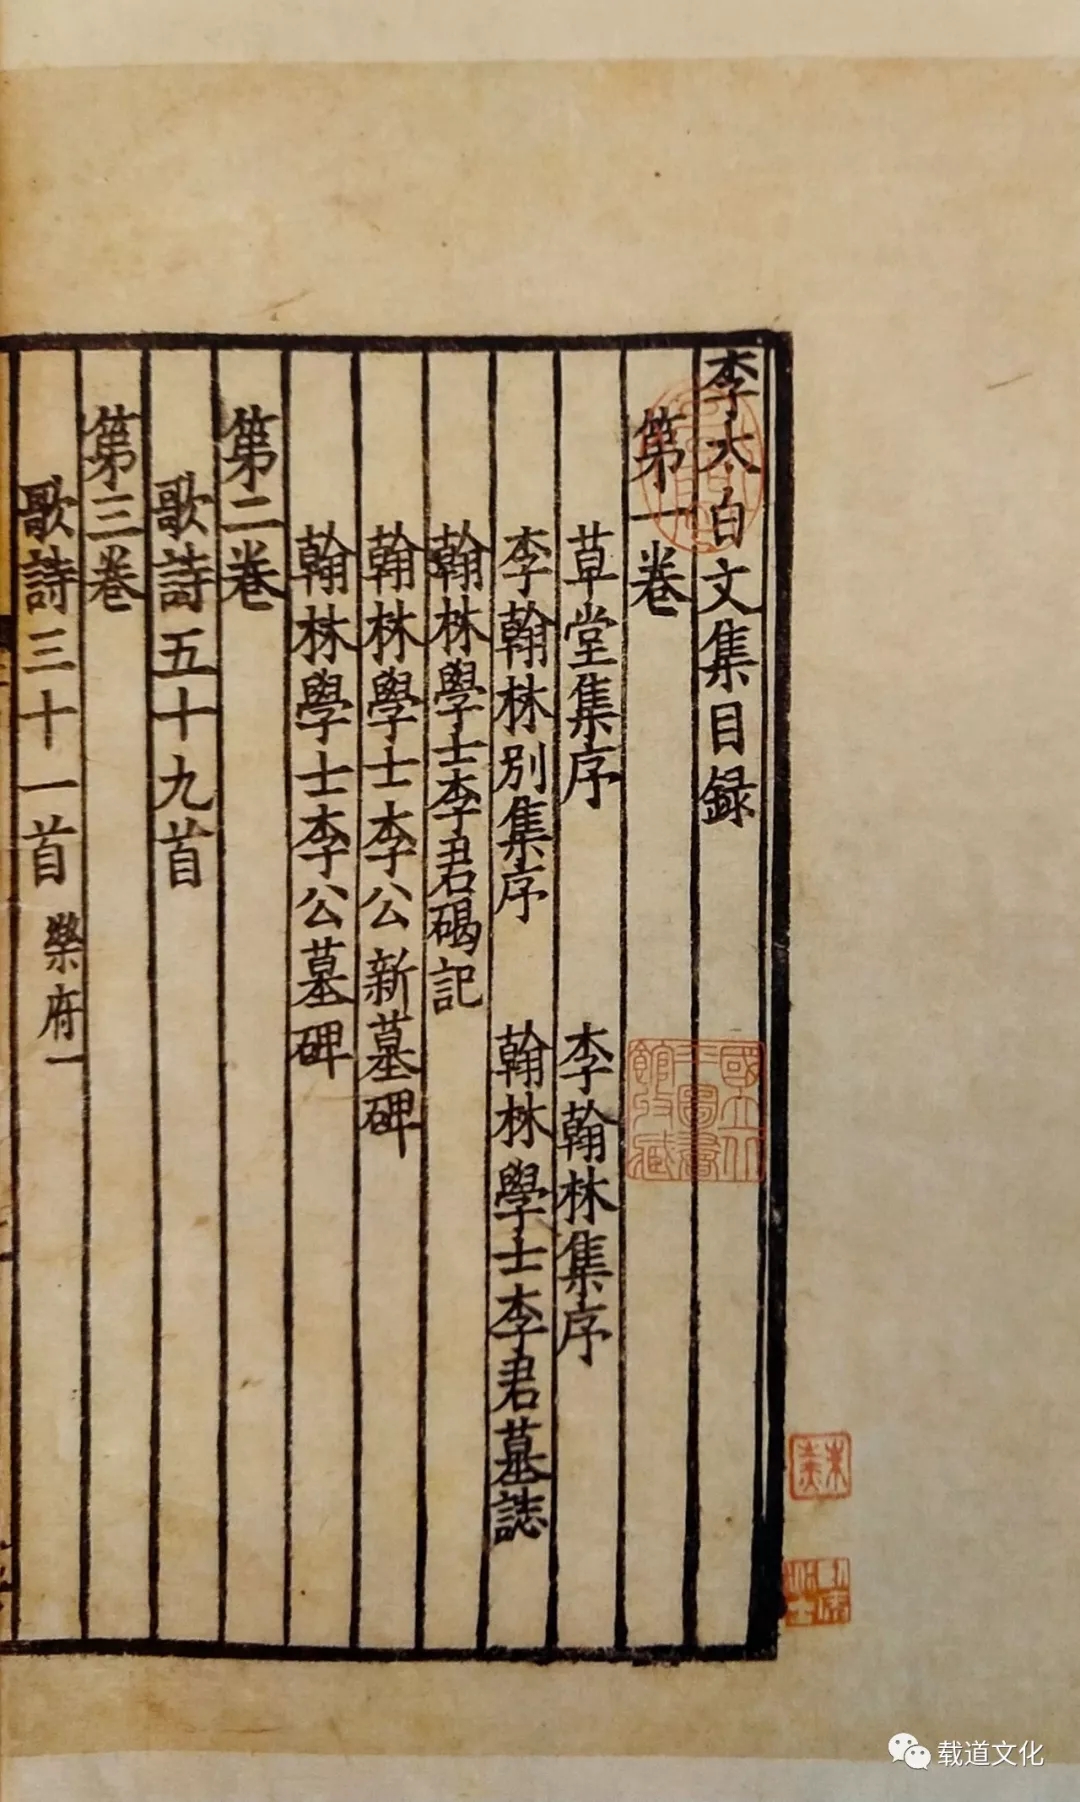 李太白文集目録
第一卷
草堂集序　李翰林集序
李翰林別集序　翰林學士李君墓誌
翰林學士李君碣記
翰林學士李公新墓碑
翰林學士李公墓碑
第二卷
歌詩五十九首
第三卷
歌詩三十一首 樂府一
國立北平圖書館收藏
载道文化